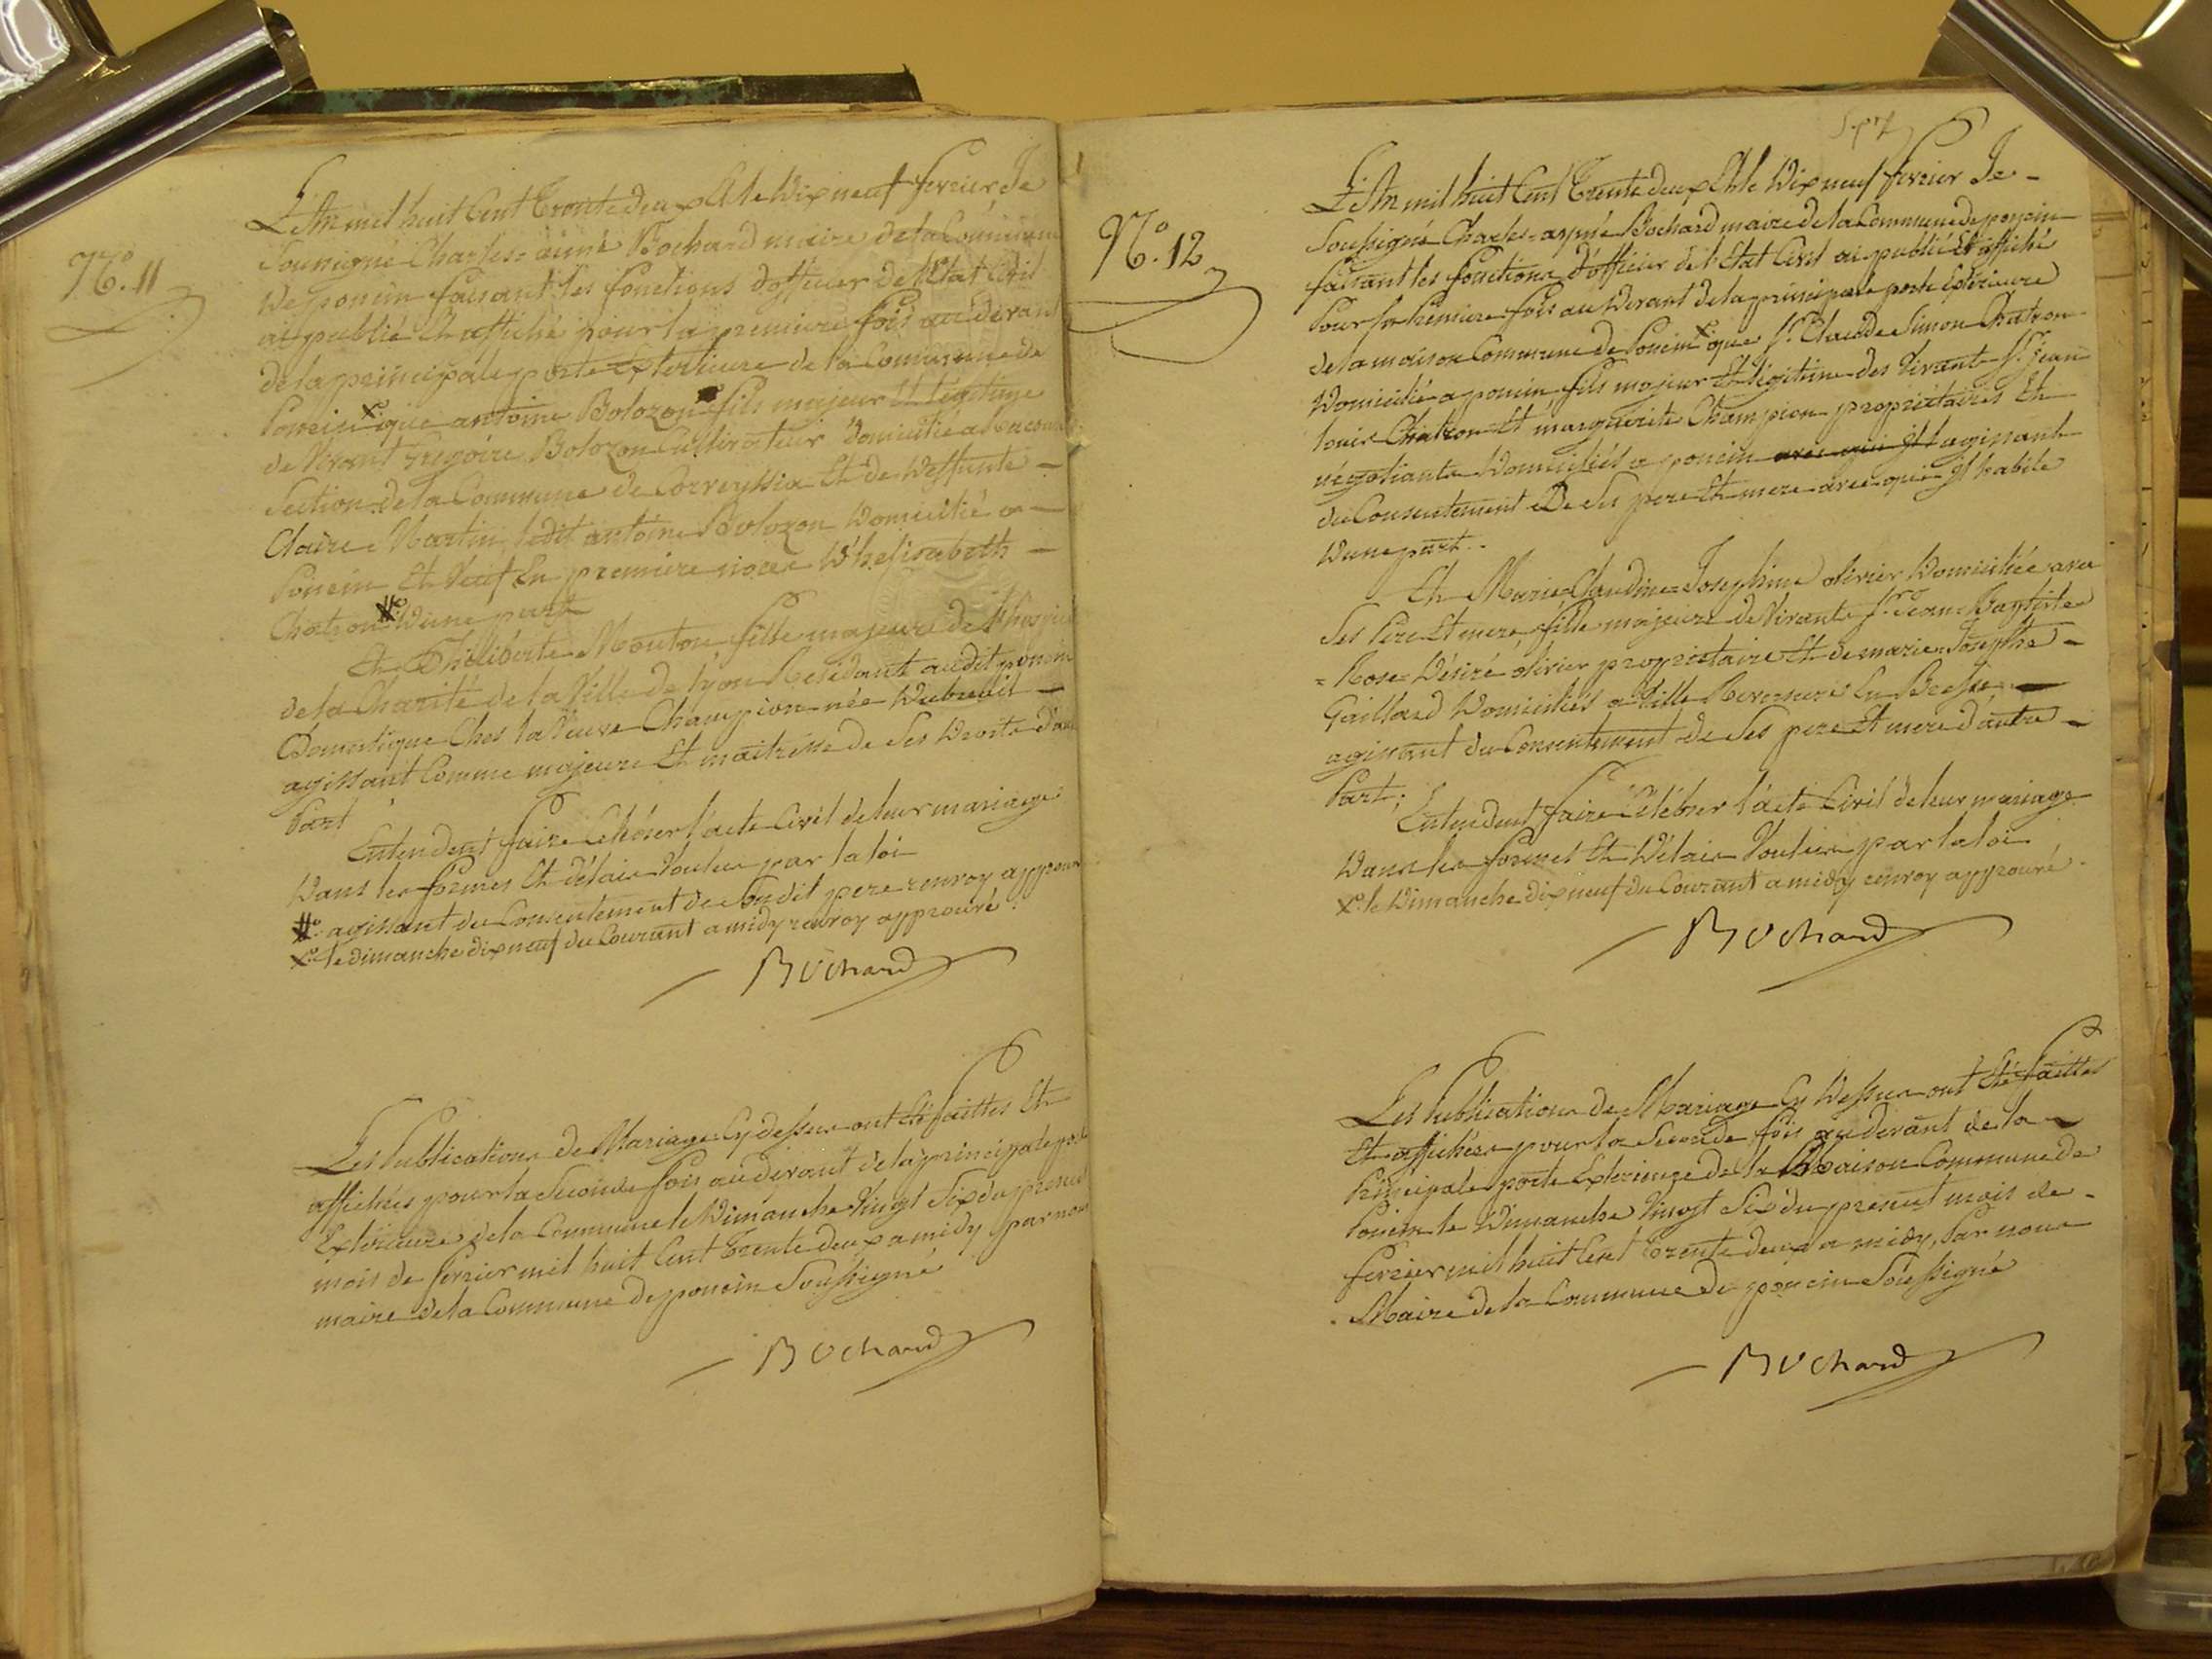 N.º 11
L'An mil huit Cent Trente deux Et le Dix neuf fevrier Je
Soussigné Charles=aimé Bochard maire de la Commune
De poncin faisant les fonctions d'officier de l'Etat Civil
ai publié Et affiché pour la premiere fois au devant
de la principale porte Exterieure de la Commune de
Poncin x que antoine Bolozon fils majeur Et legitime
de Vivant Gregoire Bolozon Cultivateur Domicilié a
Section de la Commune de Et de Deffunte
Claire Martin, ledit antoine Bolozon Domicilié a
Poncin Et Veuf En premiere noces D'helisabeth
Chatron #º D'une part
Et Philiberte Mouton fille majeure de l'hospice
de la Charité de la Ville de lyon Residante audit poncin
Domestique Chez la Veuve Champion née Dubreuil
agissant Comme majeure Et maitresse de Ses Droits d'autre
Part
Entendent faire Celébrer l'acte Civil de leur mariage
Dans les formes Et délais Voulus par la loi
#º agissant du Consentement de Sondit pere renvoy approuvé
xº le dimanche dix neuf du Courant a midy renvoy approuvé
Bochard
Les Publications de Mariage Cy dessus ont Eté faittes Et
affichées pour la Seconde fois au devant de la principale porte
Exterieure de la Commune le Dimanche Vingt Six du present
mois de fevrier mil huit Cent Trente deux a midy par nous
maire de la Commune de poncin Soussigné
Bochard
N.º 12
L'An mil huit Cent Trente deux Et le Dix neuf fevrier Je
Soussigné Charles=aymé Bochard maire de la Commune de poncin
faisant les fonctions d'officier de l'Etat Civil ai publié Et affiché
Pour la Premiere fois au Devant de la principale porte Extérieure
de la maison Commune de Poncin x que S.r Claude Simon Chatron
Domicilié a poncin, fils majeur Et légitime des Vivants S.r jean
louis Chatron Et marguerite Champion propriétaires Et
négotiants Domiciliés a poncin avec qui Il agissant
du Consentement De Ses pere Et mere avec qui Il habite
D'une part.
Et Marie=Claudine=Josephine olivier Domiciliée avec
Ses Pere Et mere, fille majeure de Vivants S.r Jean=Baptiste
=Rose=Désiré olivier propriétaire Et de marie=Josephe
Gaillard Domiciliés a Ville Reversure En Bresse
agissant du Consentement de Ses pere Et mere d'autre
Part;
Entendent faire Célébrer l'acte Civil de leur mariage
Dans les formes Et Délais Voulus par la loi
xº le Dimanche dix neuf du Courant a midy renvoy approuvé
Bochard
Les Publications de Mariage Cy Dessus ont Eté faittes
Et affichées pour la Seconde fois au devant de la
Principale porte Exterieure de la Maison Commune de
Poncin le Dimanche Vingt Six du present mois de
fevrier mil huit Cent Trente deux a midy, Par nous
Maire de la Commune de poncin Soussigné
Bochard